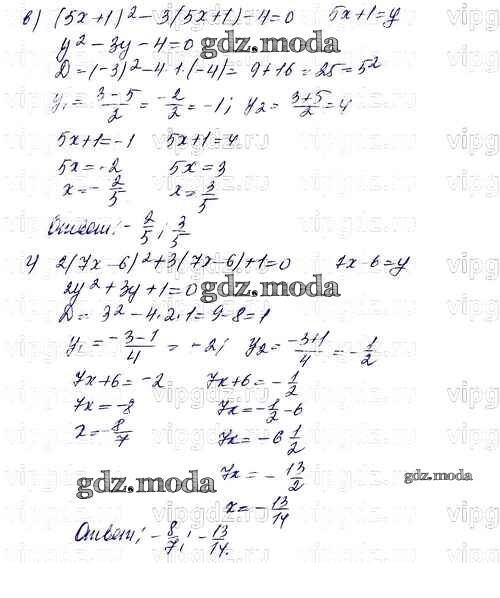 в) (5x+1)² - 3(5x+1) - 4 = 0   5x+1=y
y² - 3y - 4 = 0
D = (-3)² - 4·1·(-4) = 9+16 = 25 = 5²
y₁ = \frac{3-5}{2} = \frac{-2}{2} = -1; y₂ = \frac{3+5}{2} = 4
5x+1=-1   5x+1=4
5x=-2   5x=3
x=-\frac{2}{5}   x=\frac{3}{5}
Ответ: -\frac{2}{5}; \frac{3}{5}
г) 2(7x-6)²+3(7x-6)+1=0   7x-6=y
2y²+3y+1=0
gdz.moda
D = 3² - 4·2·1 = 9-8=1
y₁ = \frac{-3-1}{4} = -2; y₂ = \frac{-3+1}{4} = -\frac{1}{2}
7x+6=-2   7x+6=-\frac{1}{2}
7x=-8   7x=-\frac{1}{2}-6
x=-\frac{8}{7}   7x=-6\frac{1}{2}
7x=-\frac{13}{2}
gdz.moda
gdz.moda
x=-\frac{13}{14}
Ответ; -\frac{8}{7}; -\frac{13}{14}.